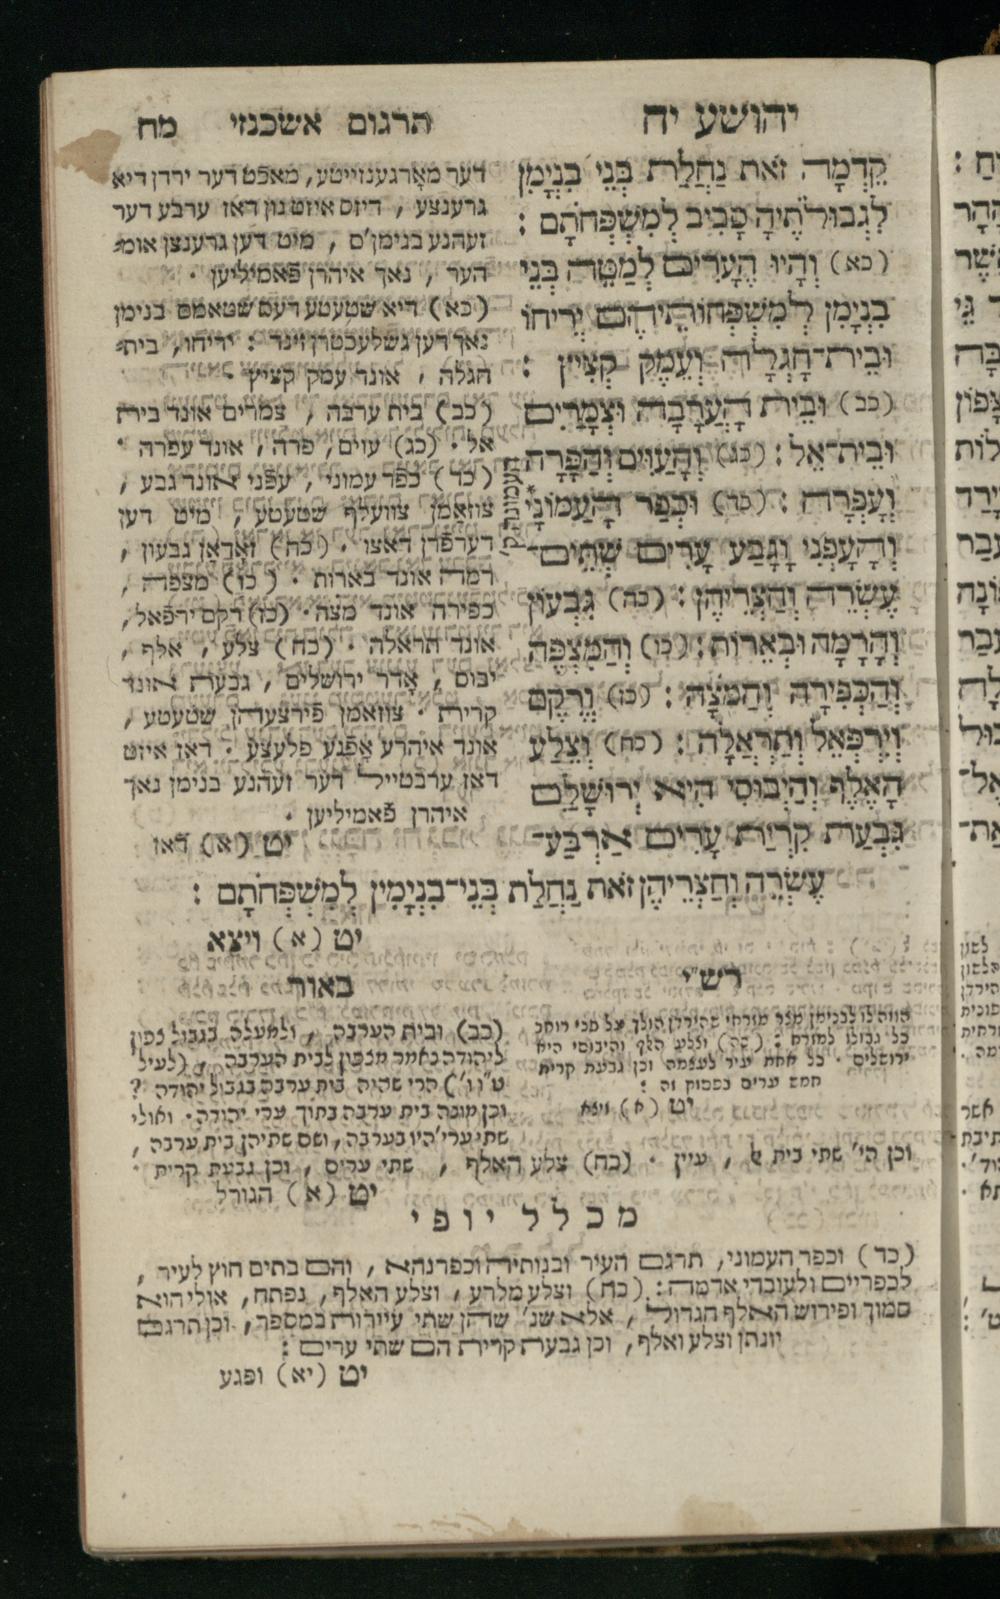 יהושע יח
תרגום אשכנזי
מח
קֵדְמָה זֹאת נַחֲלַת בְּנֵי בִנְיָמִן
לִגְבוּלֹתֶיהָ סָבִיב לְמִשְׁפְּחֹתָם :
(כא) וְהָיוּ הֶעָרִים לְמַטֵּה בְּנֵי
בִנְיָמִן לְמִשְׁפְּחוֹתֵיהֶם יְרִיחוֹ
וּבֵית־חָגְלָה וְעֵמֶק קְצִיץ :
(כב) וּבֵית הָעֲרָבָה וּצְמָרַיִם
וּבֵית־אֵל : (כג) וְהָעַוִּים וְהַפָּרָה
וְעָפְרָה : (כד) וּכְפַר הָעַמּוֹנָי
וְהָעָפְנִי וָגָבַע עָרִים שְׁתֵּים־
עֶשְׂרֵה וְחַצְרֵיהֶן : (כה) גִּבְעוֹן
וְהָרָמָה וּבְאֵרוֹת : (כו) וְהַמִּצְפֶּה
וְהַכְּפִירָה וְהַמֹּצָה : (כז) וְרֶקֶם
וְיִרְפְּאֵל וְתַרְאֲלָה : (כח) וְצֵלַע
הָאֶלֶף וְהַיְבוּסִי הִיא יְרוּשָׁלַ‍ִם
גִּבְעַת קִרְיַת עָרִים אַרְבַּע־
עֶשְׂרֵה וְחַצְרֵיהֶן זֹאת נַחֲלַת בְּנֵי־בִנְיָמִין לְמִשְׁפְּחֹתָם :
העמונה ק'
דער מאָרגענזייטע, מאכֿט דער ירדן דיא
גרענצע , דיזס איזט נון דאז ערבע דער
זעהנע בנימן'ם , מיט דען גרענצן אומ־
הער , נאך איהרן פֿאמיליען .
(כא) דיא שטעטע דעס שטאממס בנימן
נאך דען געשלעכטרן זינד : יריחו, בית־
חגלה , אונד עמק קציץ .
(כב) בית ערבה , צמרים אונד בית
אל . (כג) עוים , פרה , אונד עפרה .
(כד) כפר עמוני , עפֿני אונד גבע ,
צוזאמן צוועלף שטעטע , מיט דען
דערפֿרן דאצו . (כה) זאָדאַן גבעון ,
רמה אונד בארות . (כו) מצפה ,
כפירה אונד מצה . (כז) רקם ירפֿאל,
אונד תראלה . (כח) צלע , אלף ,
יבוס , אָדר ירושלים , גבעת אונד
קרית . צוזאמן פֿירצעהן שטעטע ,
אונד איהרע אָפֿנע פלעצע . דאז איזט
דאז ערבטייל דער זעהנע בנימן נאך
איהרן פֿאמיליען .
יט (א) דאז
יט (א) ויצא
רש"י
הוזה לו לבנימן מצר מזרחי שהירדן הולך על פני רוחב
כל גבולו למזרח : (כח) וצלע האלף והיבוסי היא
ירושלים . כל אחת עיר לעצמה וכן גבעת קרית
חמש ערים בפסוק זה :
יט (א) ויצא
באור
(כב) ובית הערבה , ולמעלה בגבול צפון
ליהודה נאמר מצפון לבית הערבה , (לעיל
ט"ו ו') הרי שהיה בית ערבה בגבול יהודה ?
וכן מונה בית ערבה בתוך ערי יהודה . ואולי
שתי ערי' היו בערבה, ושם שתיהן בית ערבה ,
וכן הי' שתי בית , עיין . (כח) צלע האלף , שתי ערים , וכן גבעת קרית .
יט (א) הגורל
מכלל יופי
(כד) וכפר העמוני, תרגם העיר ובנותיה וכפרנהא , והם בתים חוץ לעיר ,
לכפריים ולעובדי אדמה : (כח) וצלע מלרע , וצלע האלף , נפתח , אולי הוא
סמוך ופירוש האלף הגדול , אלא שנ' שהן שתי עיירות במספר , וכן תרגם
יונתן וצלע ואלף , וכן גבעת קרית הם שתי ערים :
יט (יא) ופגע